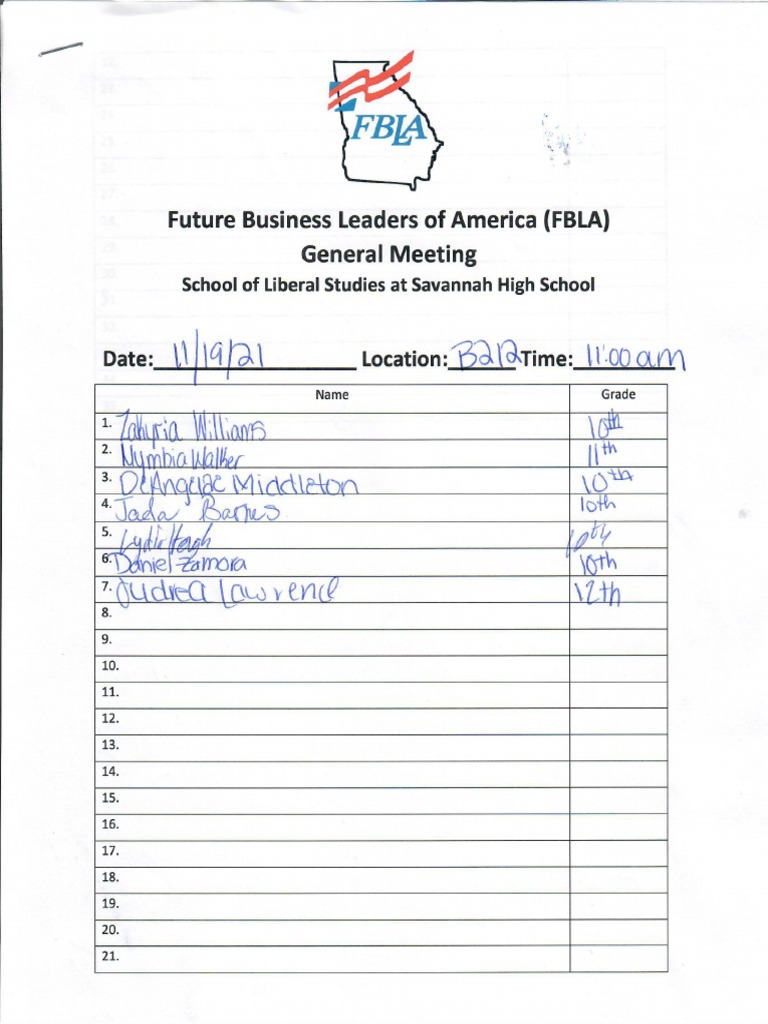 FBLA
Future Business Leaders of America (FBLA)
General Meeting
School of Liberal Studies at Savannah High School
Date: 11/19/21 Location: B212 Time: 11:00 am
Name Grade
1. Zakyria Williams 10th
2. Nymbia Walker 11th
3. Middleton 10th
4. Jada Barnes 10th
5. Lydia 10th
6. Daniel Zamora 10th
7. Lawrence 12th
8.
9.
10.
11.
12.
13.
14.
15.
16.
17.
18.
19.
20.
21.